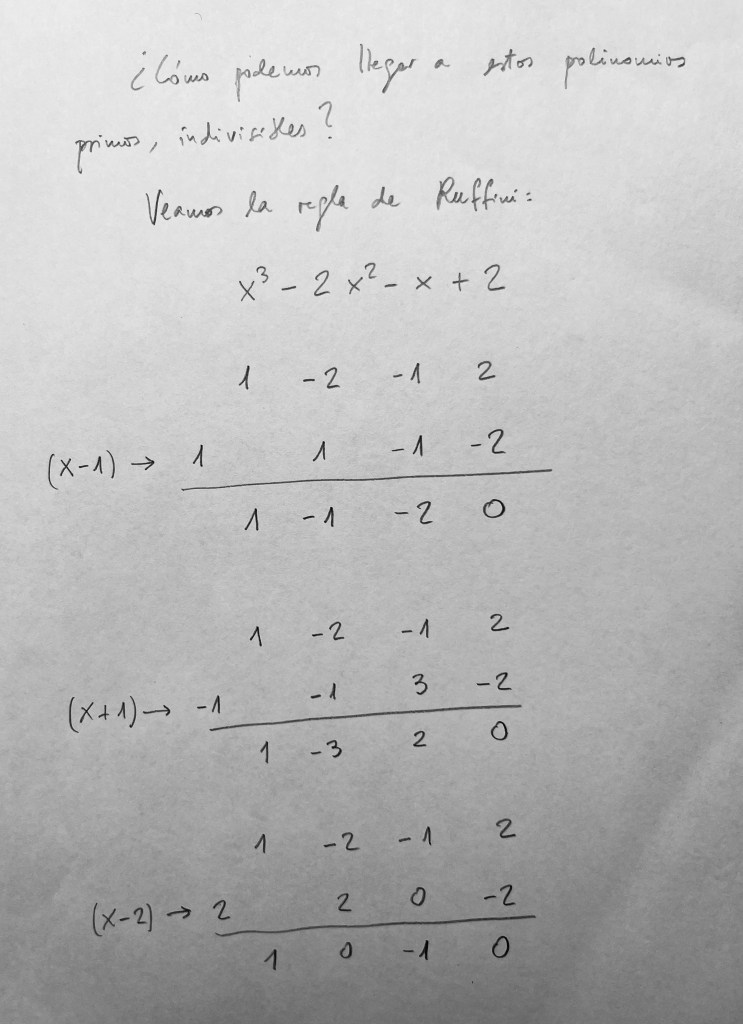 ¿Cómo podemos llegar a estos polinomios
primos, indivisibles?
Veamos la regla de Ruffini:
x³ - 2x² - x + 2
1 -2 -1 2
(x-1) → 1 1 -1 -2
1 -1 -2 0
1 -2 -1 2
(x+1) → -1 -1 3 -2
1 -3 2 0
1 -2 -1 2
(x-2) → 2 2 0 -2
1 0 -1 0